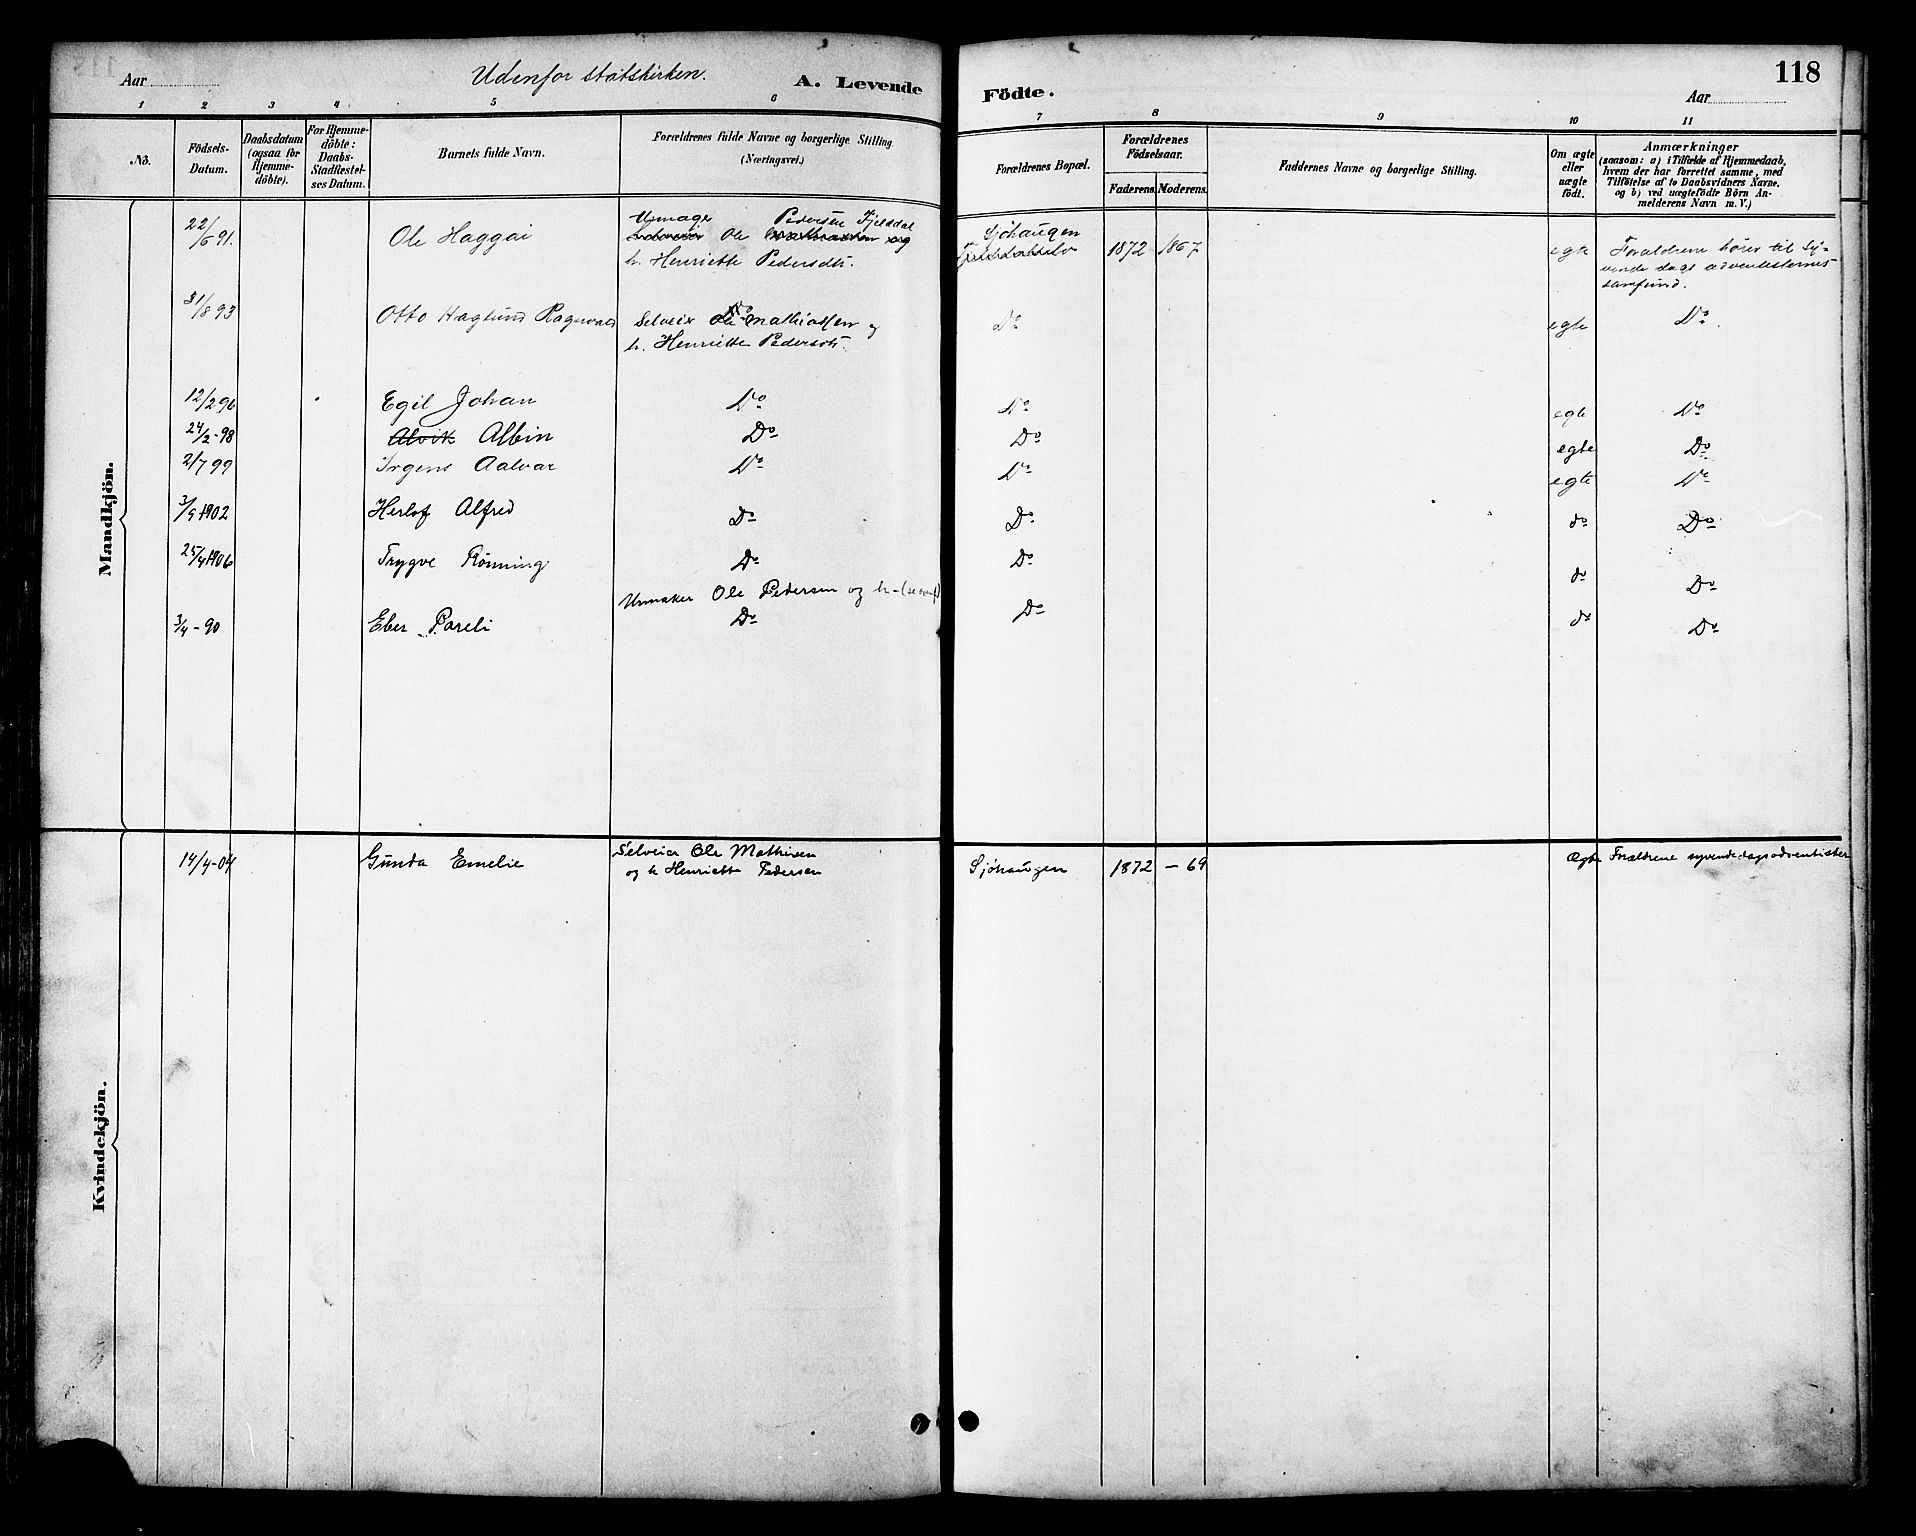 118
Aar
Udenfor statskirken.
A. Levende
Födte.
Aar
1 2 3 4 5 6 7 8 9 10 11
No.
Födsels-
Datum.
Daabsdatum
(ogsaa for
Hjemme-
döbte).
For Hjemme-
döbte:
Daabs-
Stadfæstel-
ses Datum.
Barnets fulde Navn.
Forældrenes fulde Navne og borgerlige Stilling.
(Næringsvei.)
Forældrenes Bopæl.
Forældrenes
Födselsaar.
Faderens. Moderens.
Faddernes Navne og borgerlige Stilling.
Om ægte
eller
uægte
födt.
Anmærkninger
(saasom: a) i Tilfælde af Hjemmedaab,
hvem der har forrettet samme, med
Tilföielse af to Daabsvidners Navne.
og b) ved uægtefödte Börn An-
melderens Navn m. V.)
Mandkjön.
22/6 91. Ole Haggai
Urmager Pedersen Fjeldal
Selveier Ole Mathiassen og
h. Henriette Pedersdtr.
Sjöhaugen
1872 1867 egte
Foræeldrene hörer til Sy-
vende dags adventisternes
samfund.
31/8 93 Otto Haglund Ragnvald Selveier Ole Mathiassen og
h. Henriette Pedersdtr.
Do egte Do.
12/2 96 Egil Johan Do Do egte Do
24/2-98 Alvik Albin Do Do egte Do
2/7 99 Irgens Aalvar Do Do egte Do
3/9 1902 Herlof Alfred Do Do do Do
25/4 1906 Trygve Rönning Do Do do Do
Urmaker Ole Pedersen og h-(se ovenf)
3/4-90 Eber Pareli Do Do do Do
Kvindekjön.
14/4-04 Gunda Emelie Selveier Ole Mathisen
og h Henriette Pedersen
Sjöhaugen 1872 - 69 Ægte Forældrene syvendedagsadventister